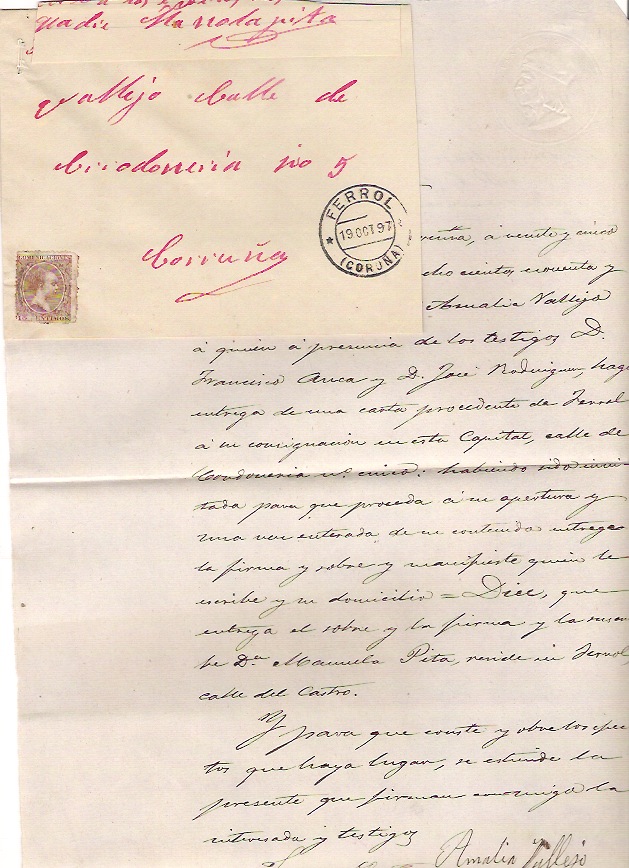 á los
madre Manuela pita
Vallejo Calle de
no 5
Corruña
FERROL
19 OCT 97
(CORUÑA)
COMUNICACIONES
15 CENTIMOS
á veinte y cinco
cho cientos noventa y
Amalia Vallejo
á quien á presencia de los testigos D.
Francisco Anca y D. José Rodriguez, hago
entrega de una carta procedente de Ferrol
á su consignación en esta Capital, calle de
Cordoneria nº. cinco: habiendo sido invi-
tada para que proceda á su apertura y
una vez enterada de su contenido entregue
la firma y sobre y manifieste quien le
escribe y su domicilio = Dice, que
entrega el sobre y la firma y la suscri-
be Dª Manuela Pita, reside en Ferrol,
calle del Castro.
Y para que conste y obre los efec-
tos que haya lugar, se estiende la
presente que firman conmigo la
interesada y testigos
Amalia Vallejo